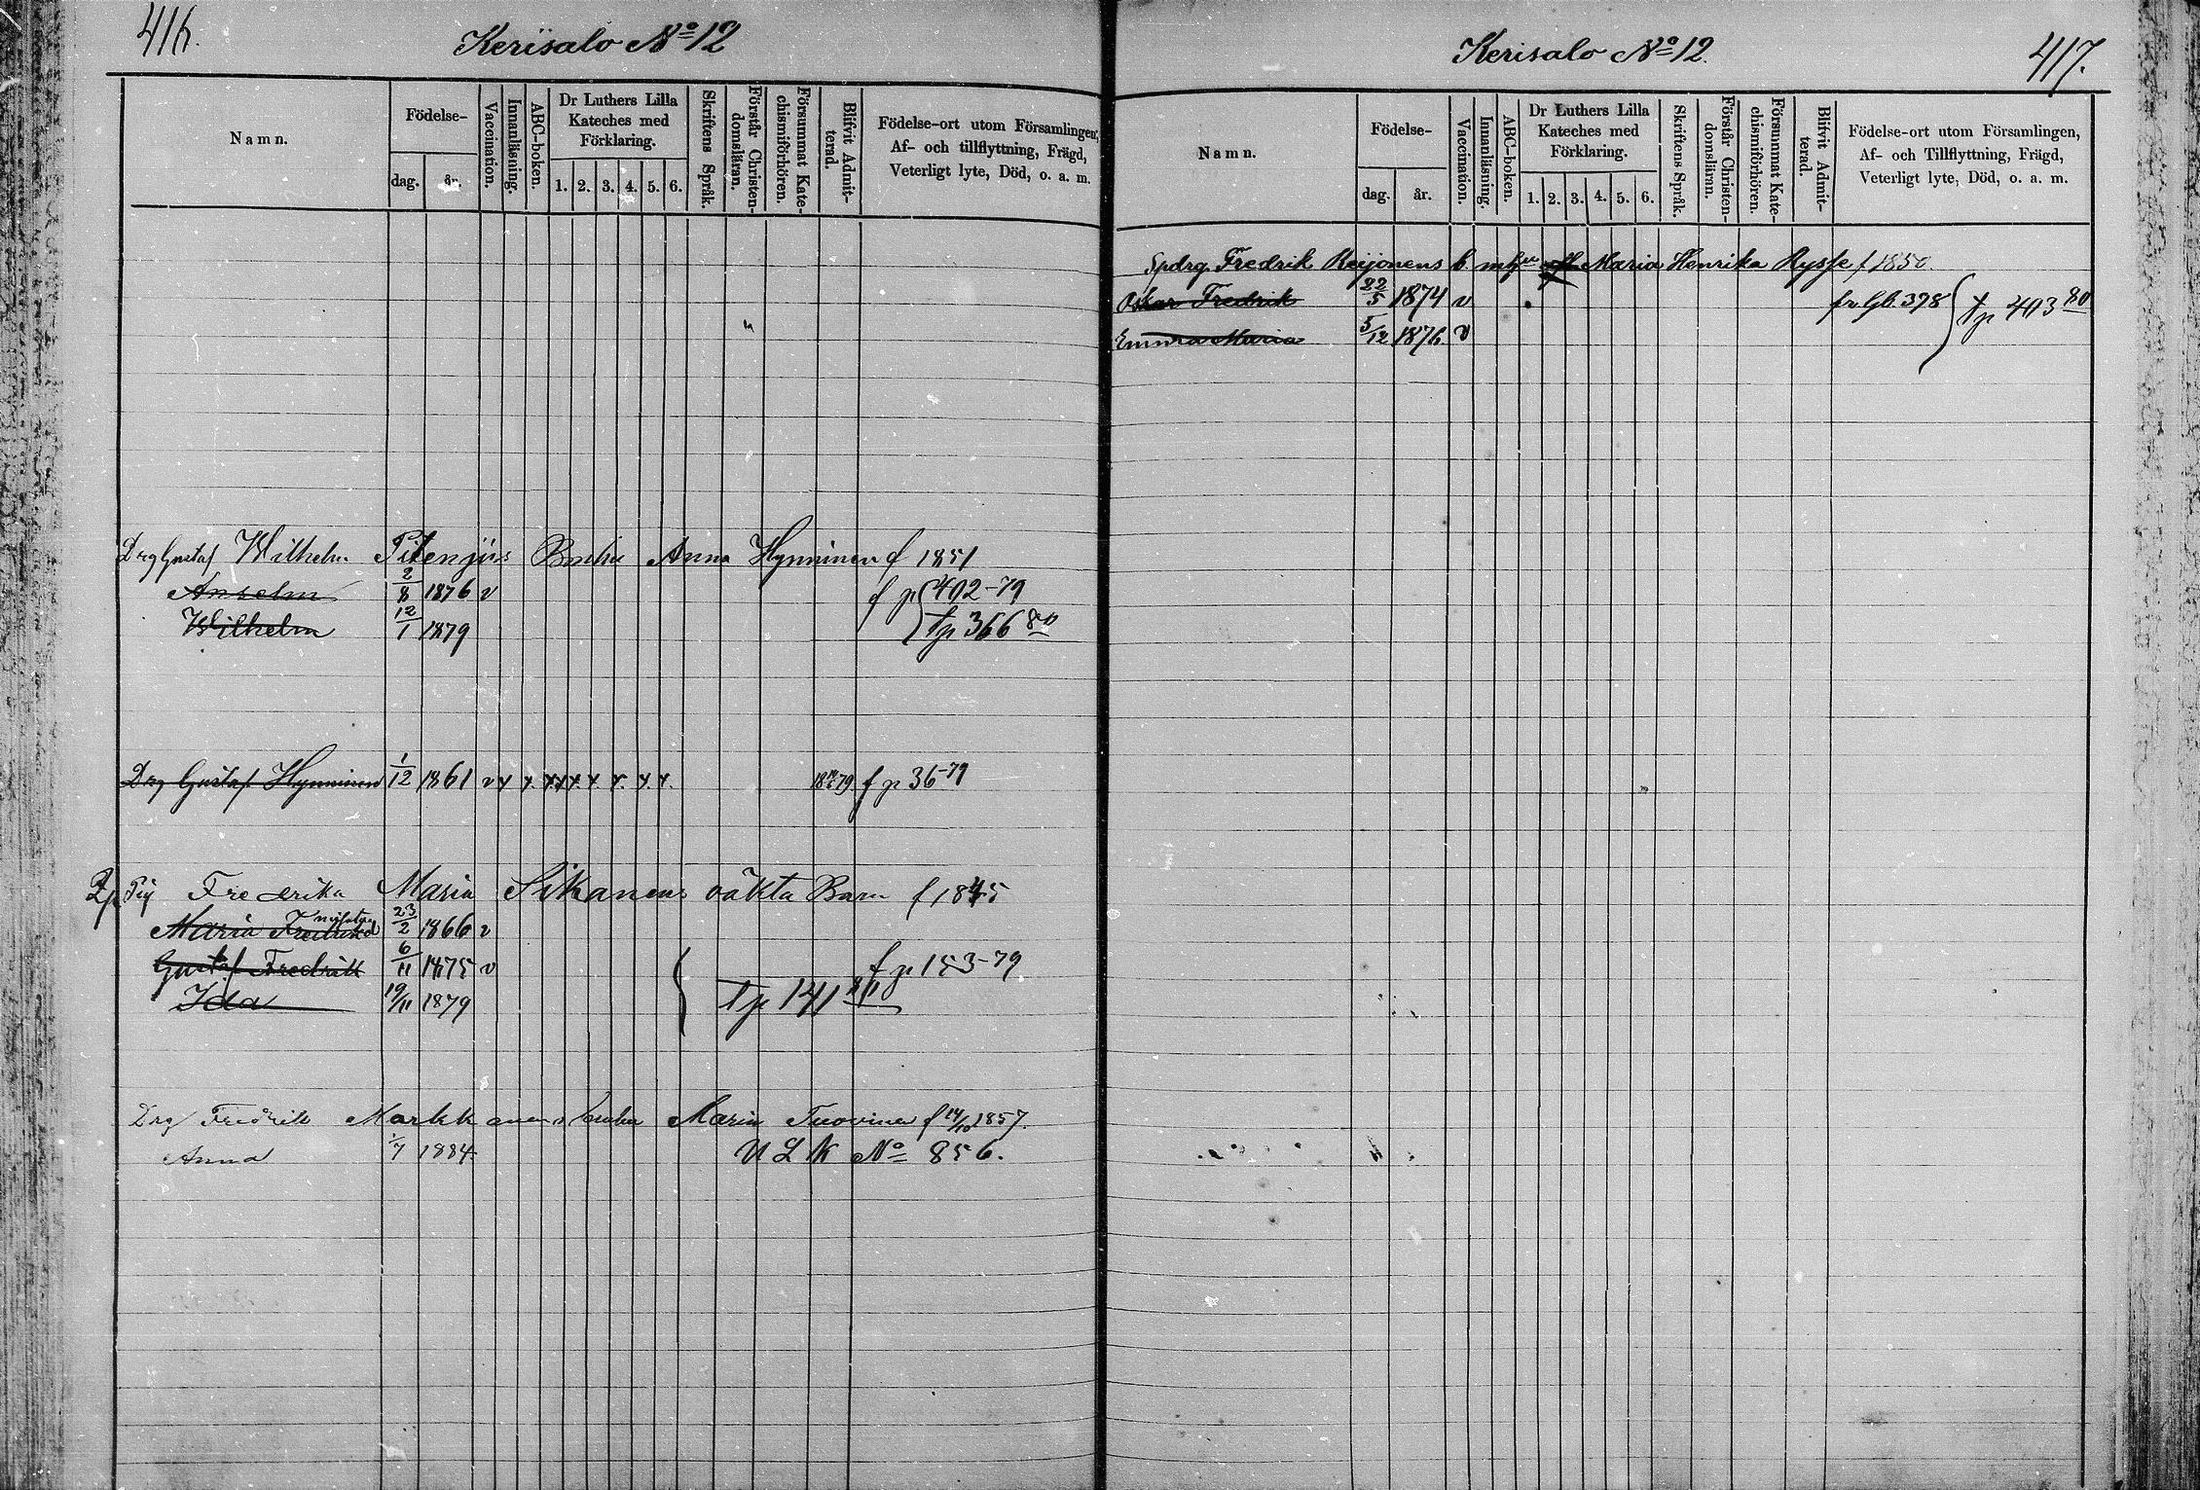 416.
Kerisalo No 12
Namn.
Födelse-
dag.
år.
Vaccination.
Innanläsning.
ABC-boken.
Dr Luthers Lilla
Kateches med
Förklaring.
1. 2. 3. 4. 5. 6.
Skriftens Språk.
Förstår Christen-
domsläran.
Försummat Kate-
chismiförhören.
Blifvit Admit-
terad.
Födelse-ort utom Församlingen,
Af- och tillflyttning, Frägd,
Veterligt lyte, Död, o. a. m.
Drg Gustaf Wilhelm Anna Hynninen f 1851
Anselm 2/8 1876 v f p 402-79
Wilhelm 12/1 1879 tp 366 80
Drg Gustaf Hynninen 1/12 1861 v x x. x x x x. x. x. x. f p 36-79
Pig Fredrika Maria Sikanens oäkta Barn f 1845
Maria 23/2 1866 v
Gustaf Fredrik 6/11 1875 v f p 153-79
Ida 19/11 1879 tp 141
Drg Fredrik Maria Tuovinen f 14/10 1857.
Anna 1/7 1884 U L K No 856.
Kerisalo No 12.
417.
Namn.
Födelse-
dag.
år.
Vaccination.
Innanläsning.
ABC-boken.
Dr Luthers Lilla
Kateches med
Förklaring.
1. 2. 3. 4. 5. 6.
Skriftens Språk.
Förstår Christen-
domsläran.
Försummat Kate-
chismiförhören.
Blifvit Admit-
terad.
Födelse-ort utom Församlingen,
Af- och Tillflyttning, Frägd,
Veterligt lyte, Död, o. a. m.
Spdrg Fredrik Reijonens b. m Maria Henrika Rysse f 1850
Oskar Fredrik 22/5 1874 v fr. Gb. 398 tp 403 80
Emma Maria 5/12 1876. v